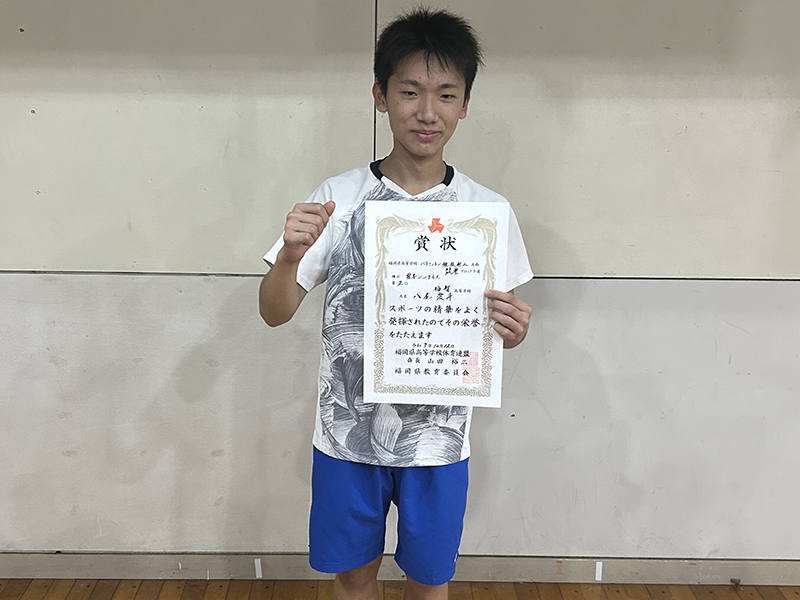 賞状
福岡県高等学校 バドミントン 大会
筑豊 ブロック予選
種目 男子シングルス
高等学校
氏名 八尾
スポーツの精華をよく
発揮されたのでその栄誉
をたたえます
令和7年10月12日
福岡県高等学校体育連盟
会長 山田 裕二
福岡県教育委員会